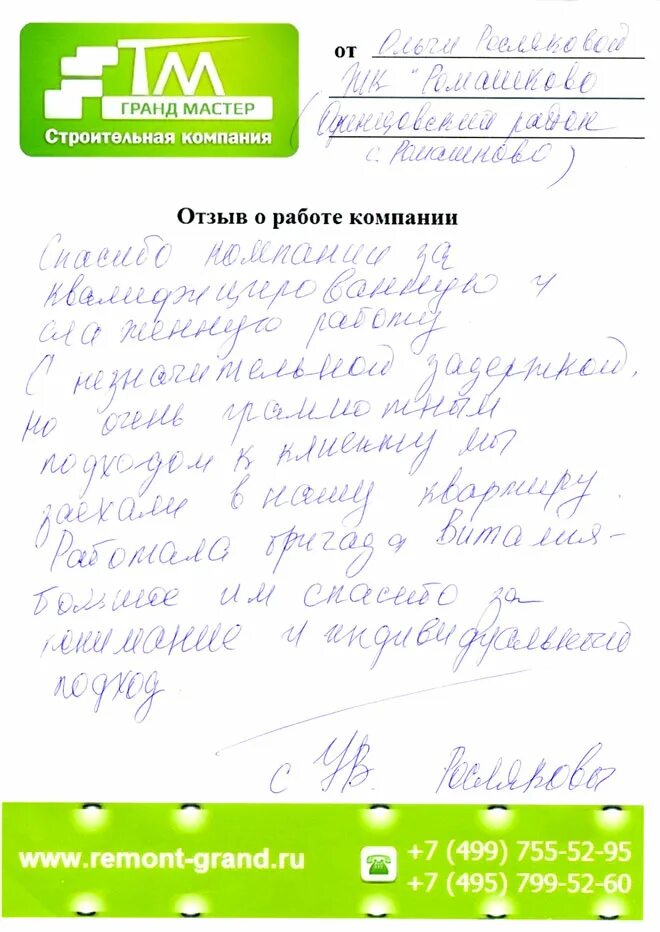 ГМ
ГРАНД МАСТЕР
Строительная компания
от Ольги Росляковой
ЖК "Ромашково
(Одинцовский район
с. Ромашково)
Отзыв о работе компании
Спасибо компании за
квалифицированную и
слаженную работу
С незначительной задержкой,
но очень грамотным
подходом к клиенту мы
заехали в нашу квартиру.
Работала бригада Виталия-
большое им спасибо за
понимание и индивидуальный
подход
с Ув. Росляковы
www.remont-grand.ru
+7 (499) 755-52-95
+7 (495) 799-52-60